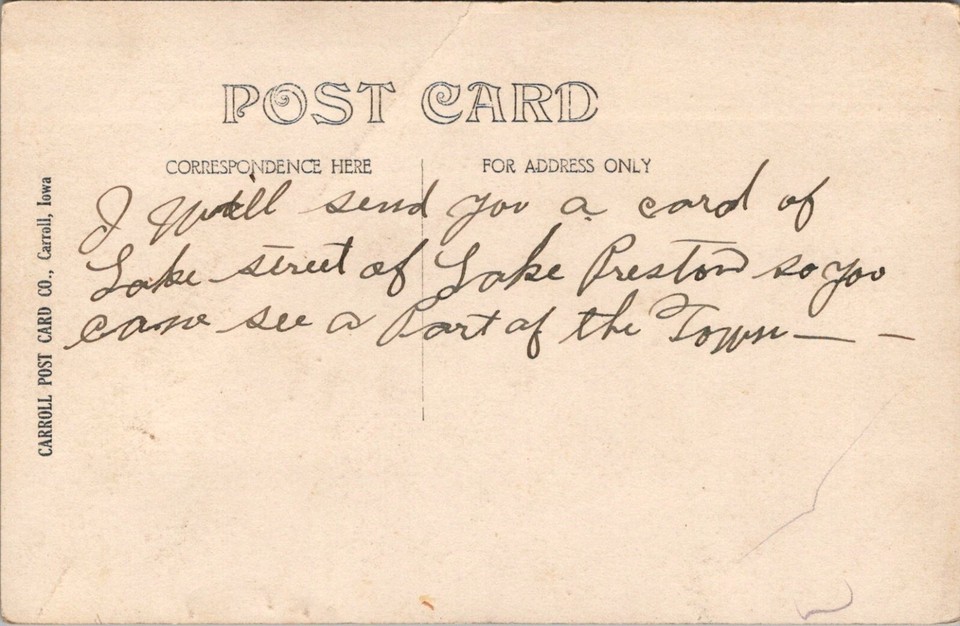 POST CARD
CORRESPONDENCE HERE
FOR ADDRESS ONLY
I will send you a card of
Lake street of Lake Preston so you
cane see a Part of the Town — -
CARROLL POST CARD CO., Carroll, Iowa